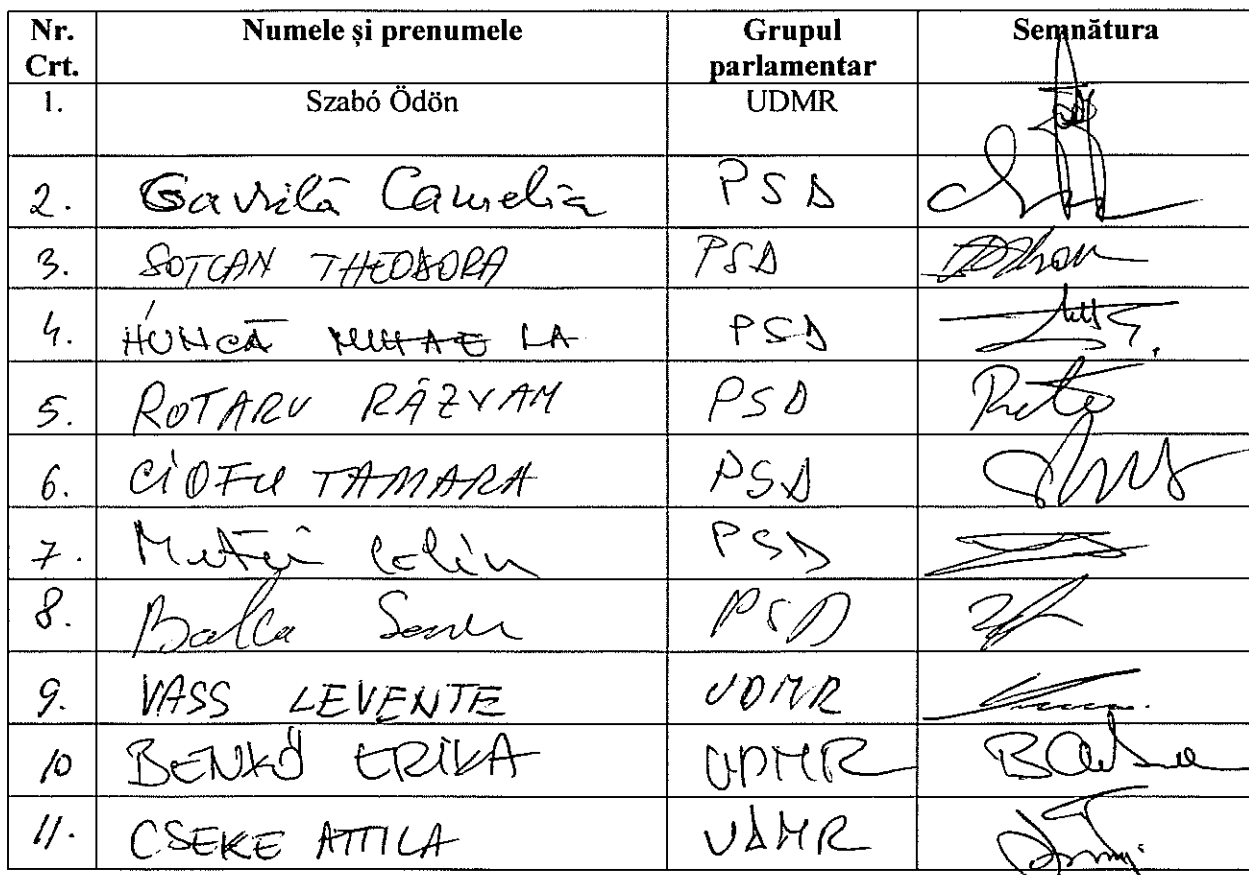 Nr. Crt. Numele și prenumele Grupul parlamentar Semnătura
1. Szabó Ödön UDMR
2. Gavrilă Camelia PSD
3. SOTCAN THEODORA PSD
4. HUNCĂ MIHAELA PSD
5. ROTARU RĂZVAN PSD
6. CIOFU TAMARA PSD
7. Matei Călin PSD
8. PSD
9. VASS LEVENTE UDMR
10 BENKŐ ERIKA UDMR
11. CSEKE ATTILA UDMR